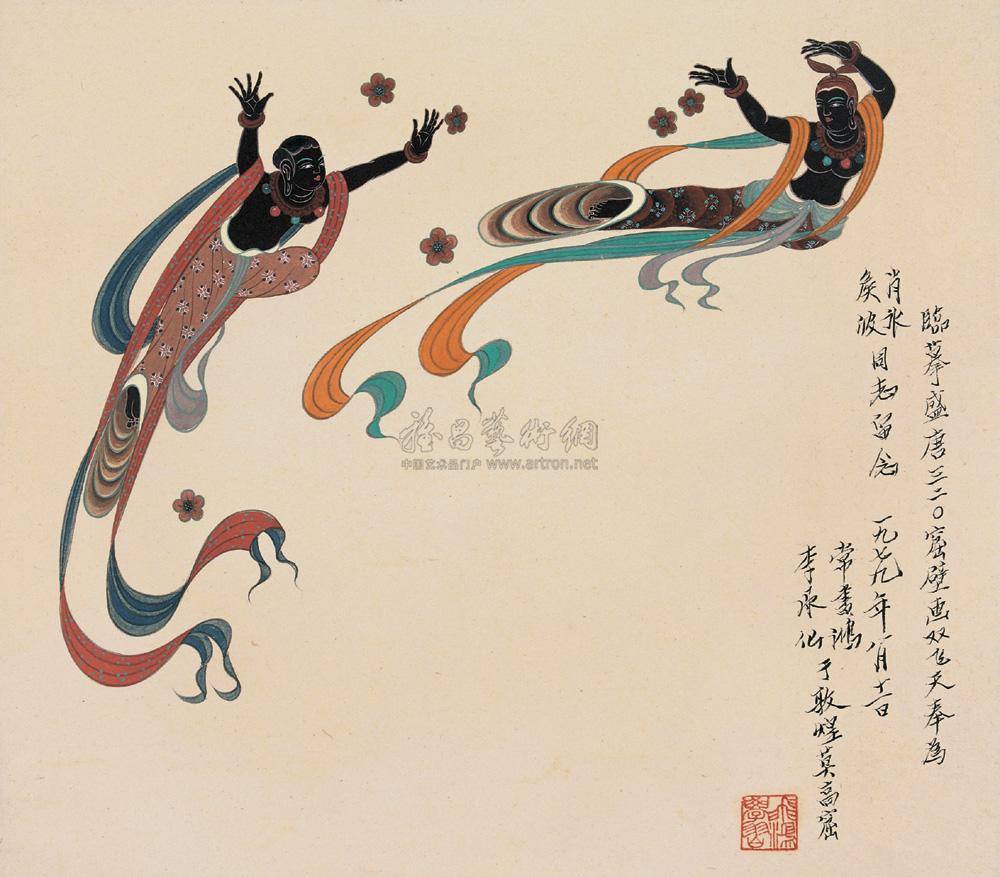 臨摹盛唐三二〇窟壁画双飞天奉為
肖永
侯波同志留念 一九七九年八月十一日
常書鴻
李承仙于敦煌莫高窟
雅昌藝術網
中国艺术品门户 www.artron.net